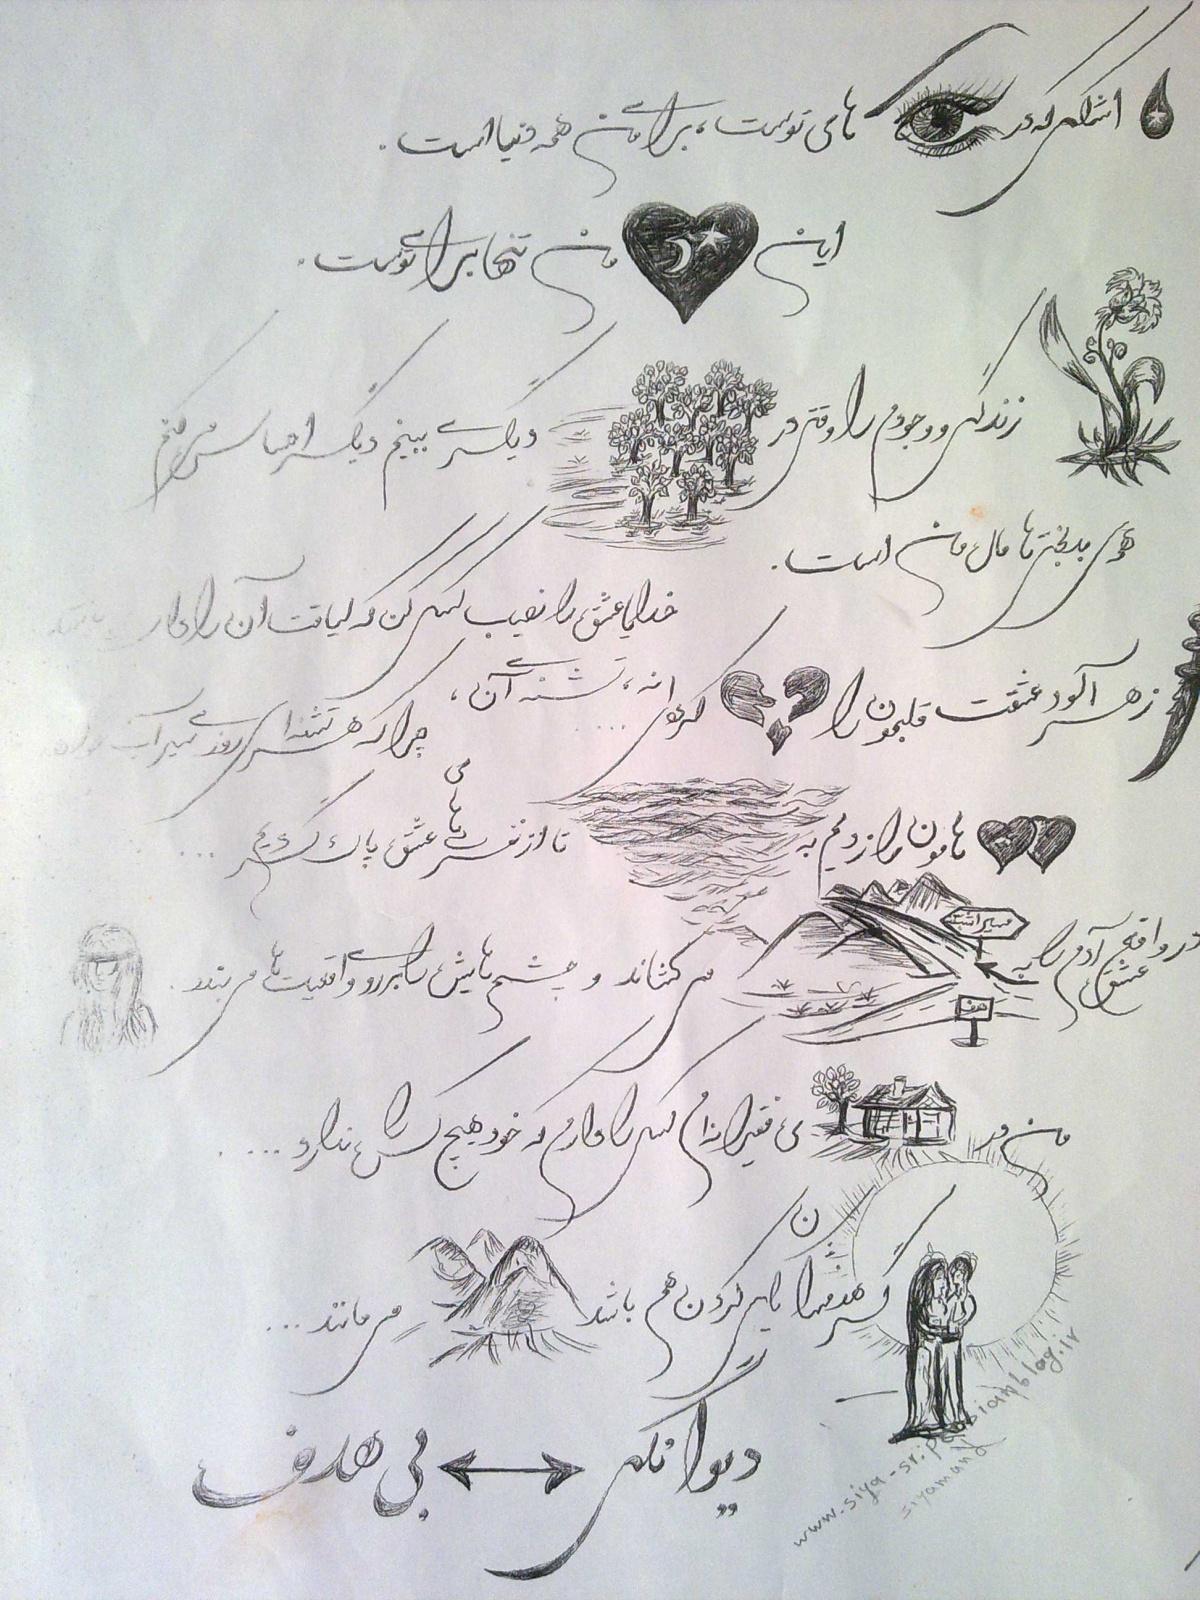 اشکی که در های توست، برای من همه دنیا است.
این من تنها برای توست.
زندگی و وجودم را وقتی در دیگری ببینم دیگر احساس میکنم
همه‌ی بدبختی‌ها مال من است.
خدایا عشق را نصیب کسی کن که لیاقت آن را دارد
زهر آلود عشقت قلبمون را کرده، تشنه‌ی آن،
چرا که هر تشنه‌ای روزی سیراب
هامون را زدیم به تا از نفرت‌های عشق پاک گردیم ...
در واقع آدمی را به
عشق می‌کشاند و چشم‌هایش را بر روی واقعیت‌ها می‌بندد.
مسیر اشتباه
هدف
من در ی فقیرانه‌ام کسی را دارم که خود هیچ کس را ندارد ...
گر هدمها یاری کردن هم باشد می‌ماند ...
دیوانگی ↔ بی هدف
www.siya-sr.persianblog.ir
siyamand